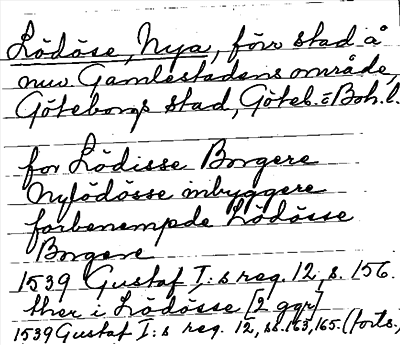 Lödöse, Nya, förr stad å
nuv. Gamlestadens område,
Göteborgs stad, Göteb. o Boh. l.
for Lödisse Borgere
Nylödösse inbyggere
forbenempde Lödösse
Borgere
1539 Gustaf I:s reg. 12, s. 156.
ther i Lödösse [2 ggr]
1539 Gustaf I:s reg. 12, ss. 163, 165. (forts.)